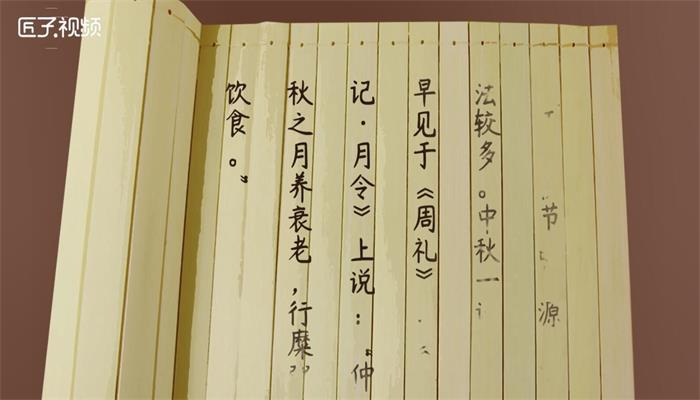 匠子视频
节
源
法较多。中秋一
早见于《周礼》
记·月令》上说：“仲
秋之月养衰老，行糜
饮食。”